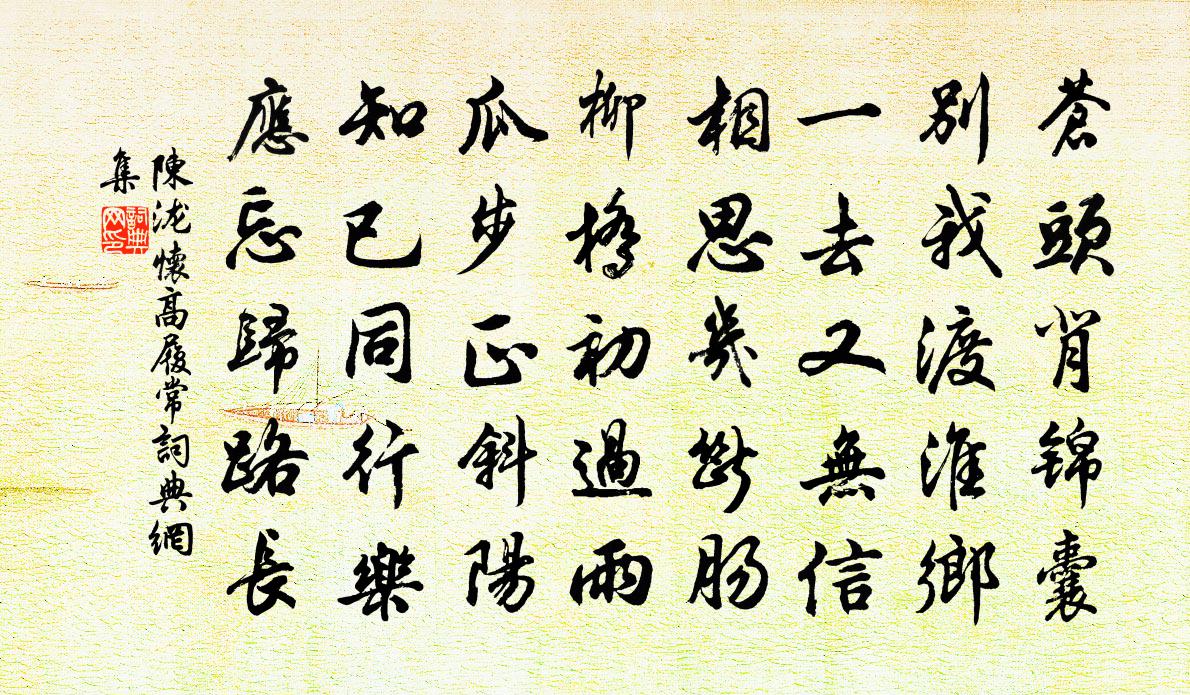 蒼頭肖錦囊
別我渡淮鄉
一去又無信
相思幾斷腸
柳橋初過雨
瓜步正斜陽
知已同行樂
應忘歸路長
陳泷懷高履常詞典網
集
詞典
网印